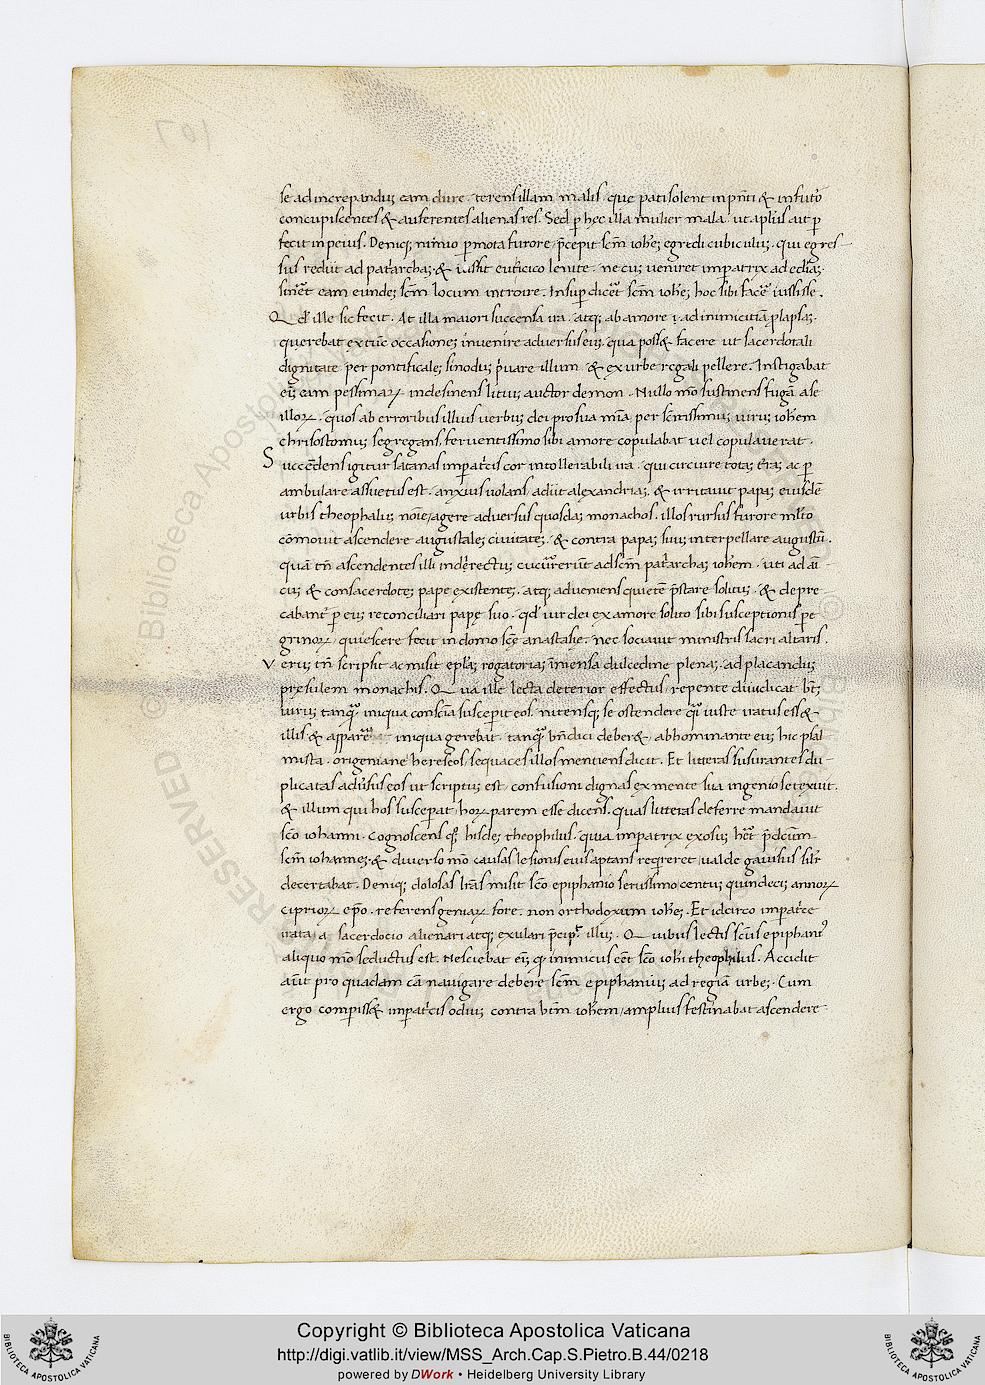 se ad increpanduȝ eam dure. terens illam malis. que pati solent in pn̄ti & in futo᷑
concupiscentes & auferentes alienas res. Sed p̱ hec illa mulier mala. ut aplus̄ ait p̱
fecit in peius. Deniq; nimio p̱mota furore. p̄cepit scm̄ ioheȝ egredi cubiculuȝ. qui egres-
sus rediit ad pat᷑archaȝ. & iussit euticico lenite. ne cuȝ ueniret imp̱atrix ad eccliā
sinet᷑ eam eundeȝ scm̄ locum introire. Insup̱ dicet᷑ scm̄ ioheȝ hoc sibi facē iussisse.
Qd̄ ille sic fecit. At illa maiori succensa ira. atq; ab amore i. ad inimicitiā prolapsa.
querebat ex tūc occasioneȝ inuenire aduersus eum. qua poss& facere ut sacerdotali
dignitate per pontificaleȝ sinoduȝ p᷑uare illum. & ex urbe regali pellere. Instigabat
eī eam pessimaꝝ indesinens lituȝ auctor demon. Nullo mō sustinens fugā a se
illoꝝ. quos ab erroribus illius uerbuȝ dei pro sua mīa per scn̄tissimuȝ uirum iohem̄
chrisostomuȝ segregans. feruentissimo sibi amore copulabat uel copulauerat.
Succedens igitur satanas imp̱at᷑cis cor intollerabili ira. qui circuire totaȝ t̄raȝ ac p̱
ambulare assuetus est. anxius uolans adiit alexandriaȝ. & irritauit papaȝ eiusdē
urbis theophiluȝ noīe agere aduersus quosdaȝ monachos. illos rursus furore mlto
cōmouit ascendere augustaleȝ ciuitateȝ. & contra papaȝ suuȝ interpellare augustū.
quā tn̄ ascendentes illi indirectuȝ cucurrerūt ad scm̄ pat᷑archaȝ iohem. uti ad ami-
cuȝ & consacerdoteȝ pape existenteȝ. atq; aduenienS quietē p̄stare solituȝ. & depre
cabant᷑ p̱ eum reconciliari pape suo. qd̄ uir dei ex amore solito sibi susceptionis p̱e
grinoꝝ quiescere fecit in domo scē anastasie. nec sociauit ministris sacri altaris.
Veruȝ tn̄ scripsit ac misit eplaȝ rogatoriaȝ īmensa dulcedine plenaȝ. ad placanduȝ
presulem monachis. Qua ille lecta deterior effectus repente diiudicat bt̄ȝ
uiruȝ tanqȝ iniqua conscia susceperit eos. nitensq; se ostendere qr᷑ iuste iratus ess&
illis & appare iniqua gerebat. tanqȝ bn̄dici deber& abhominante eum hic psal
mista. origeniane hereseos sequaces illos mentiens dicit. Et litteras susurantes du-
plicatas aduersus eos ut scriptuȝ est. confusioni dignas ex mente sua ingeniose texiuit.
& illum qui hos susceperat hoꝝ parem esse dicens. quas litteras deferre mandauit
scō iohanni. Cognoscens qȝ hisdeȝ theophilus. quia imp̱atrix exosuȝ het᷑ p̄dcum̄
scm̄ iohanneȝ. & diuerso mō causas lesionis eius aptans reqreret. ualde gauisus silr̄
decertabat. Deniq; dolosas lrās misit scō epiphanio senissimo centuȝ quindeciȝ annoꝝ
ciprioꝝ epō. referens geniaꝝ fore non orthodoxum ioheȝ. Et idcirco imp̱at᷑ce
irata, a sacerdocio alienari atq; exulari p̄cip᷑ illuȝ. Quibus lectis scūs epiphani᷒
aliquo mō seductus est. Nesciebat eī q̄ inimicus eēt scō iohi theophilus. Accidit
aūt pro quadam cā nauigare debere scm̄ epiphaniuȝ ad regiā urbeȝ. Cum
ergo comp̱iss& imp̱at᷑cis odiuȝ contra btm̄ iohem, amplius festinabat ascendere
Copyright © Biblioteca Apostolica Vaticana
http://digi.vatlib.it/view/MSS_Arch.Cap.S.Pietro.B.44/0218
powered by DWork • Heidelberg University Library